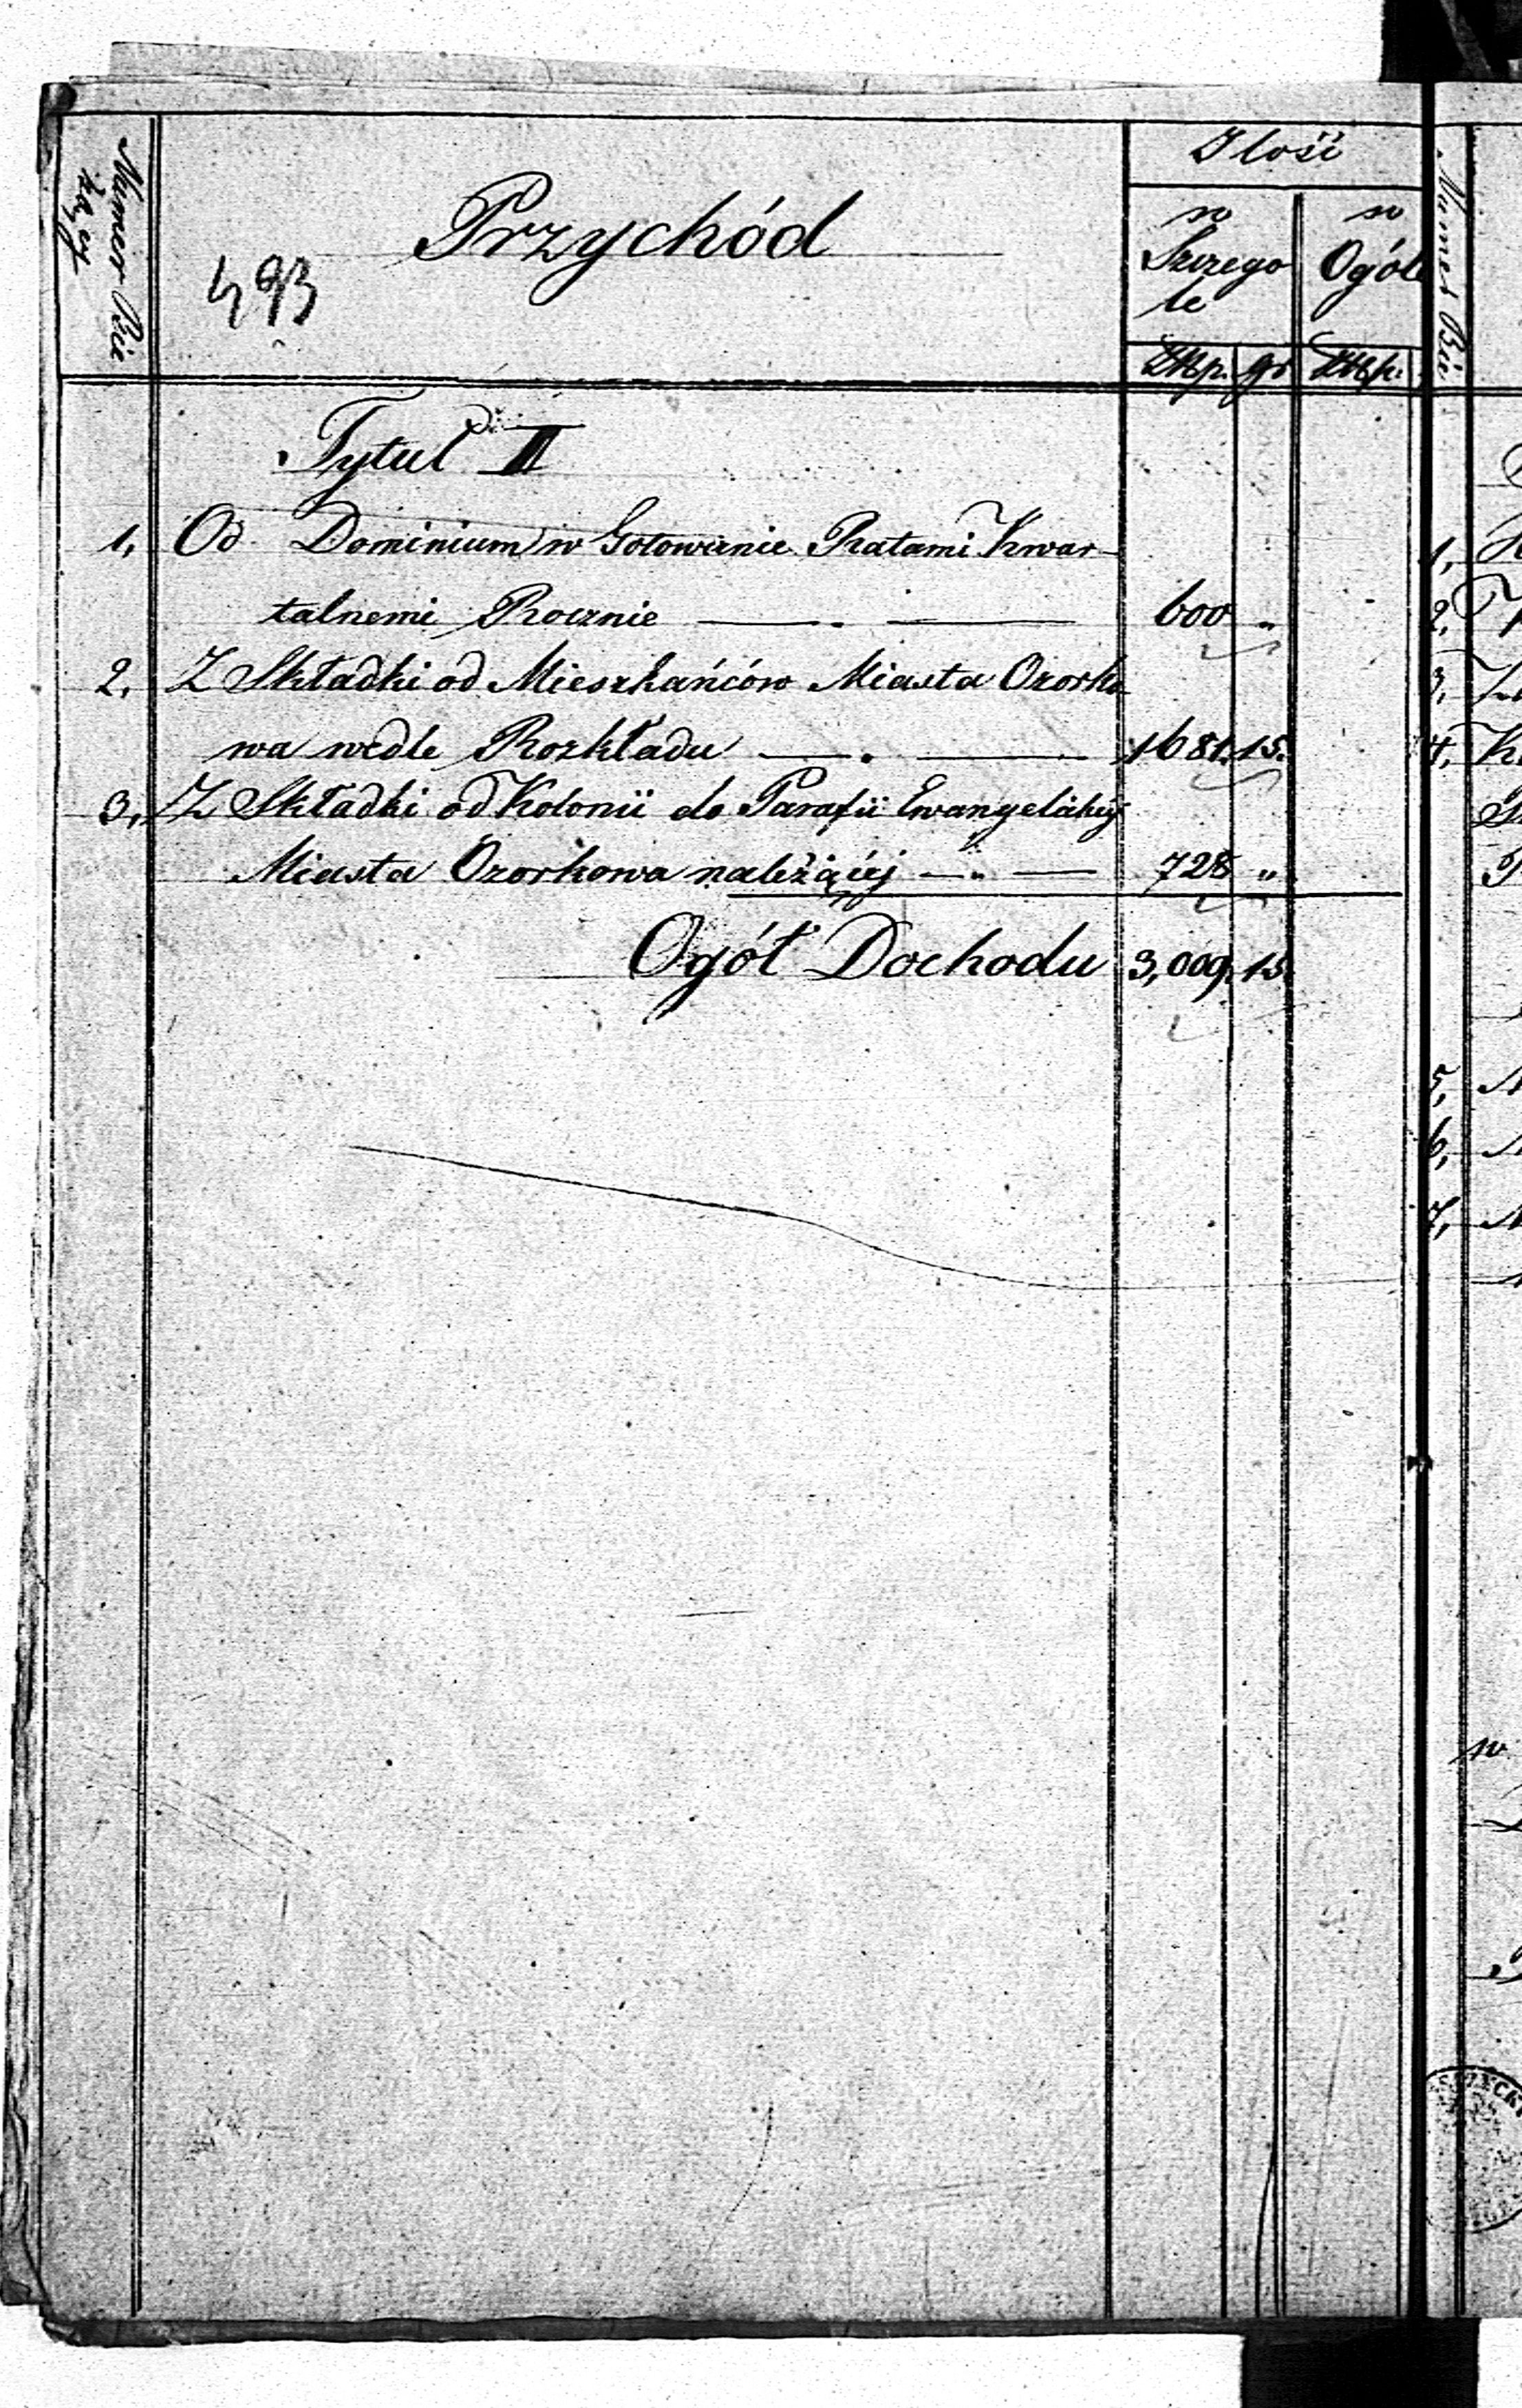 Numer Bie
żący
Przychód
493
Ilość
w
Szczego
le
w
Ogóle
ZłRp. gr ZłRp.
Tytuł II
1, Od Dominium w Gotowiznie Ratami Kwar-
talnemi Rocznie — . — 600 "
2, Z Składki od Mieszkańców Miasta Ozorko-
wa wedle Rozkładu — . — 1681. 15.
3, Z Składki od Kolonii do Parafii Ewangelickiej
Miasta Ozorkowa należącéj — " — 728 "
Ogół Dochodu 3,009. 15.
Numer Bie
1,
2,
3,
4,
5,
6,
7,
w